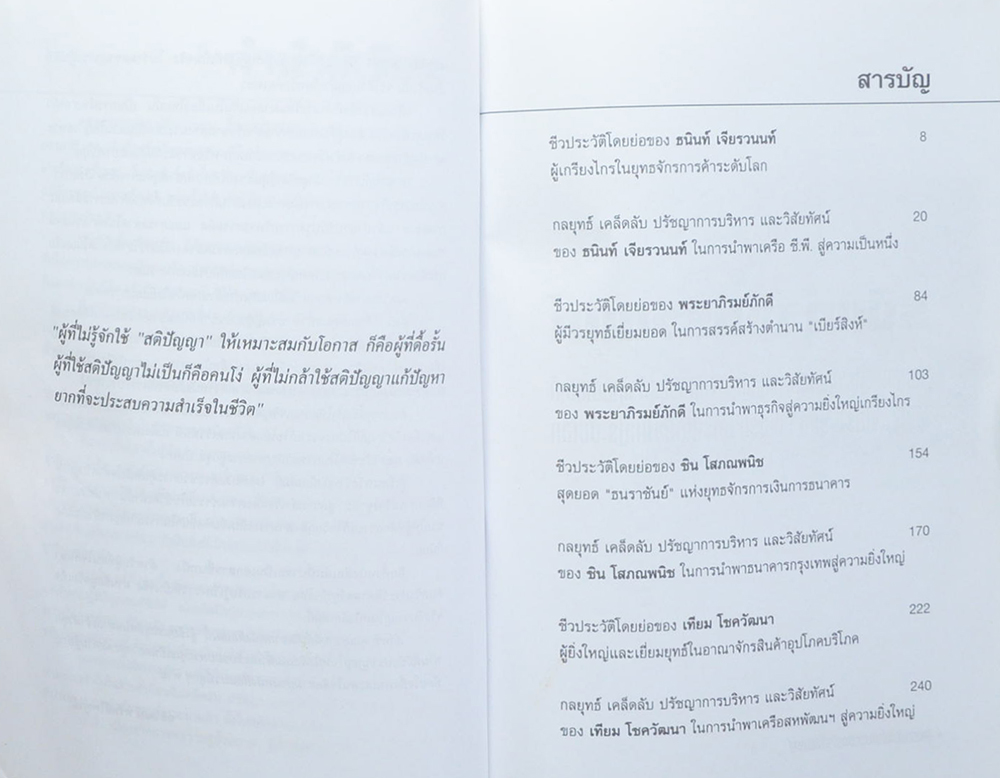 "ผู้ที่ไม่รู้จักใช้ "สติปัญญา" ให้เหมาะสมกับโอกาส ก็คือผู้ที่ดื้อรั้น
ผู้ที่ใช้สติปัญญาไม่เป็นก็คือคนโง่ ผู้ที่ไม่กล้าใช้สติปัญญาแก้ปัญหา
ยากที่จะประสบความสำเร็จในชีวิต"
สารบัญ
ชีวประวัติโดยย่อของ ธนินท์ เจียรวนนท์ 8
ผู้เกรียงไกรในยุทธจักรการค้าระดับโลก
กลยุทธ์ เคล็ดลับ ปรัชญาการบริหาร และวิสัยทัศน์ 20
ของ ธนินท์ เจียรวนนท์ ในการนำพาเครือ ซี.พี. สู่ความเป็นหนึ่ง
ชีวประวัติโดยย่อของ พระยาภิรมย์ภักดี 84
ผู้มีวรยุทธ์เยี่ยมยอด ในการสรรค์สร้างตำนาน "เบียร์สิงห์"
กลยุทธ์ เคล็ดลับ ปรัชญาการบริหาร และวิสัยทัศน์ 103
ของ พระยาภิรมย์ภักดี ในการนำพาธุรกิจสู่ความยิ่งใหญ่เกรียงไกร
ชีวประวัติโดยย่อของ ชิน โสภณพนิช 154
สุดยอด "ธนราชันย์" แห่งยุทธจักรการเงินการธนาคาร
กลยุทธ์ เคล็ดลับ ปรัชญาการบริหาร และวิสัยทัศน์ 170
ของ ชิน โสภณพนิช ในการนำพาธนาคารกรุงเทพสู่ความยิ่งใหญ่
ชีวประวัติโดยย่อของ เทียม โชควัฒนา 222
ผู้ยิ่งใหญ่และเยี่ยมยุทธ์ในอาณาจักรสินค้าอุปโภคบริโภค
กลยุทธ์ เคล็ดลับ ปรัชญาการบริหาร และวิสัยทัศน์ 240
ของ เทียม โชควัฒนา ในการนำพาเครือสหพัฒนฯ สู่ความยิ่งใหญ่